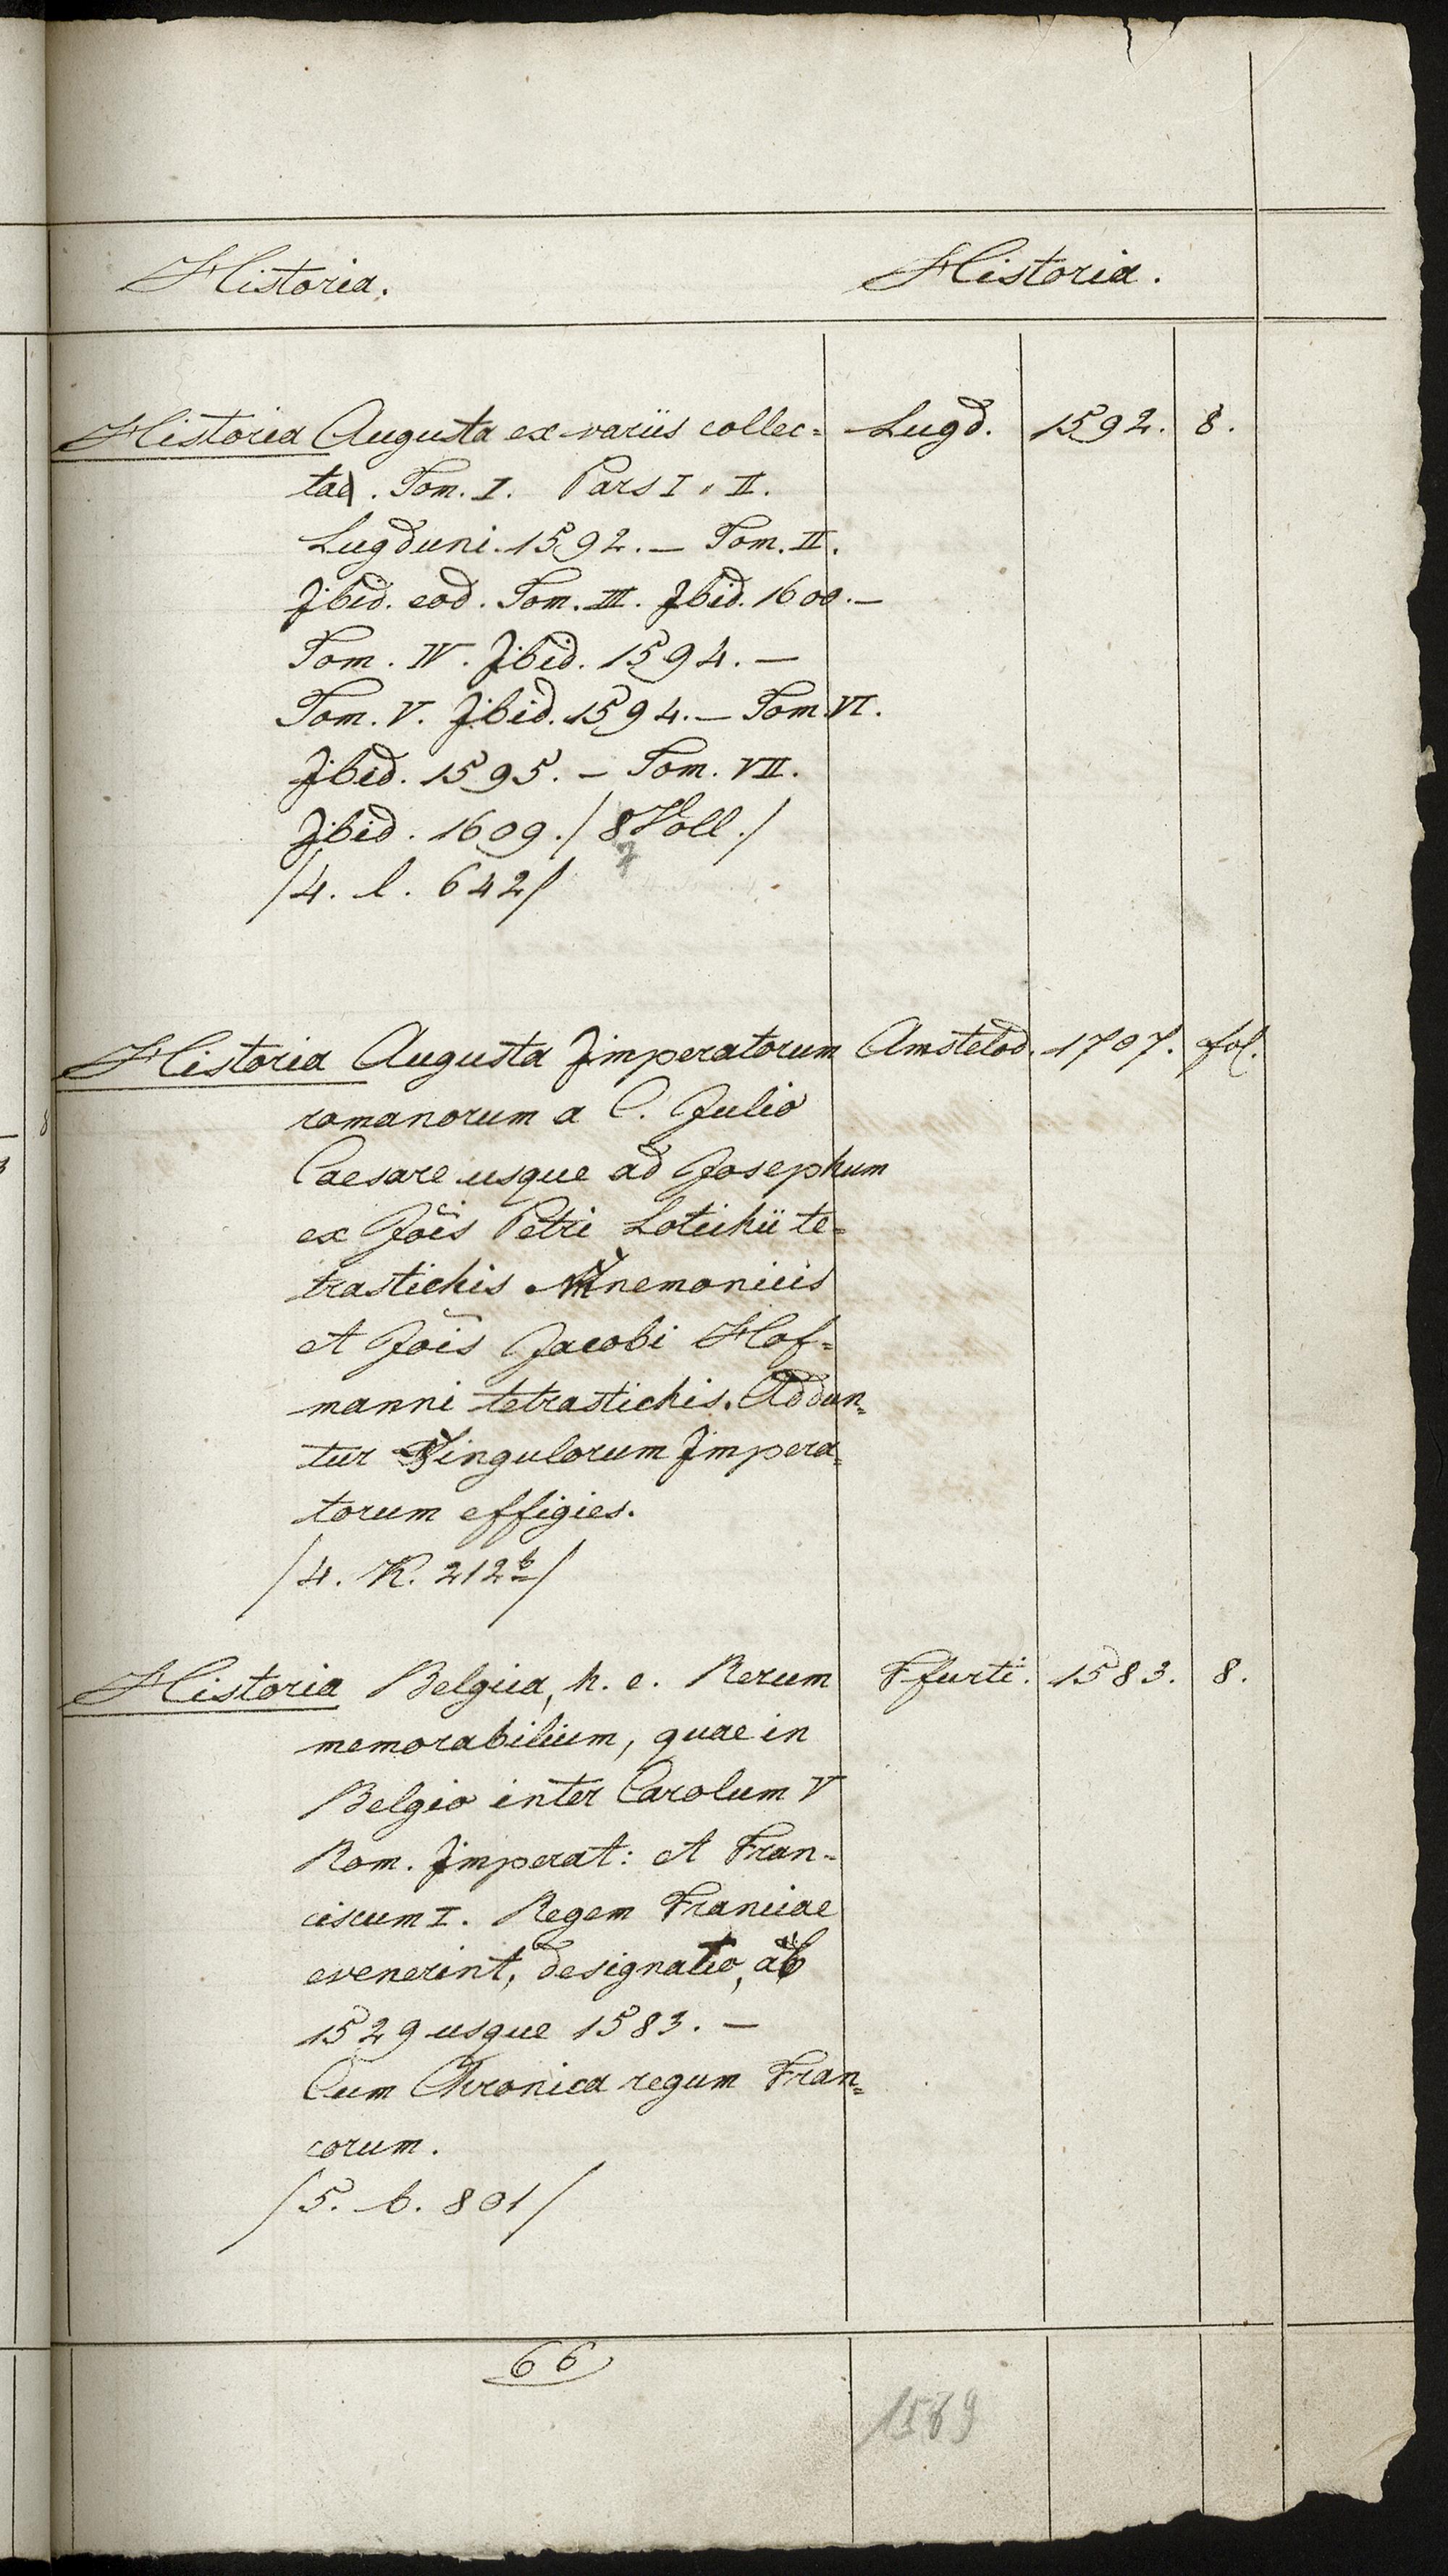 Historia. Historia.
Historia Augusta ex variis collec= Lugd. 1592. 8.
ta. Tom. I. Pars I, II.
Lugduni. 1592. — Tom. II.
Ibid. eod. Tom. III. Ibid. 1600. —
Tom. IV. Ibid. 1594. —
Tom. V. Ibid. 1594. — Tom. VI.
Ibid. 1595. — Tom. VII.
Ibid. 1609. / 8 Voll. /
7
/4. l. 642/
Historia Augusta Imperatorum Amstelod. 1707. fol.
romanorum a C. Julio
Caesare usque ad Josephum
ex Jois Petri Lotichii te=
trastichis Mnemonicis
et Jois Jacobi Hof=
manni tetrastichis. Addun=
tur Singulorum Impera=
torum effigies.
/4. K. 212b/
Historia Belgica, h. e. Rerum Ffurti. 1583. 8.
memorabilium, quae in
Belgio inter Carolum V
Rom. Imperat: et Fran=
ciscum I. Regem Franciae
evenerint, designatio, ab
1529 usque 1583. —
Cum Chronica regum Fran=
corum.
/5. b. 801/
66